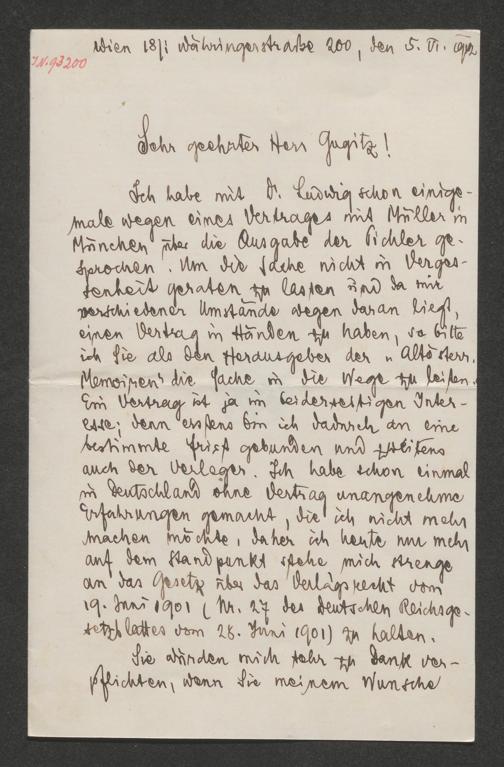 Wien 18/1 Währingerstraße 200, den 5. VI. 1912
I.N. 93200
Sehr geehrter Herr Gugitz!
Ich habe mit Dr. Ludwig schon einige-
male wegen eines Vertrages mit Müller in
München über die Ausgabe der Pichler ge-
sprochen. Um die Sache nicht in Verges-
senheit geraten zu lassen und da mir
verschiedener Umstände wegen daran liegt,
einen Vertrag in Händen zu haben, so bitte
ich Sie als den Herausgeber der „Altösterr.
Memoiren" die Sache in die Wege zu leiten.
Ein Vertrag ist ja im beiderseitigen Inter-
esse; denn erstens bin ich dadurch an eine
bestimmte Frist gebunden und zweitens
auch der Verleger. Ich habe schon einmal
in Deutschland ohne Vertrag unangenehme
Erfahrungen gemacht, die ich nicht mehr
machen möchte, daher ich heute nur mehr
auf dem Standpunkt stehe mich strenge
an das Gesetz über das Verlagsrecht vom
19. Juni 1901 (Nr. 27 des Deutschen Reichsge-
setzblattes vom 28. Juni 1901) zu halten.
Sie würden mich sehr zu Dank ver-
pflichten, wenn Sie meinem Wunsche